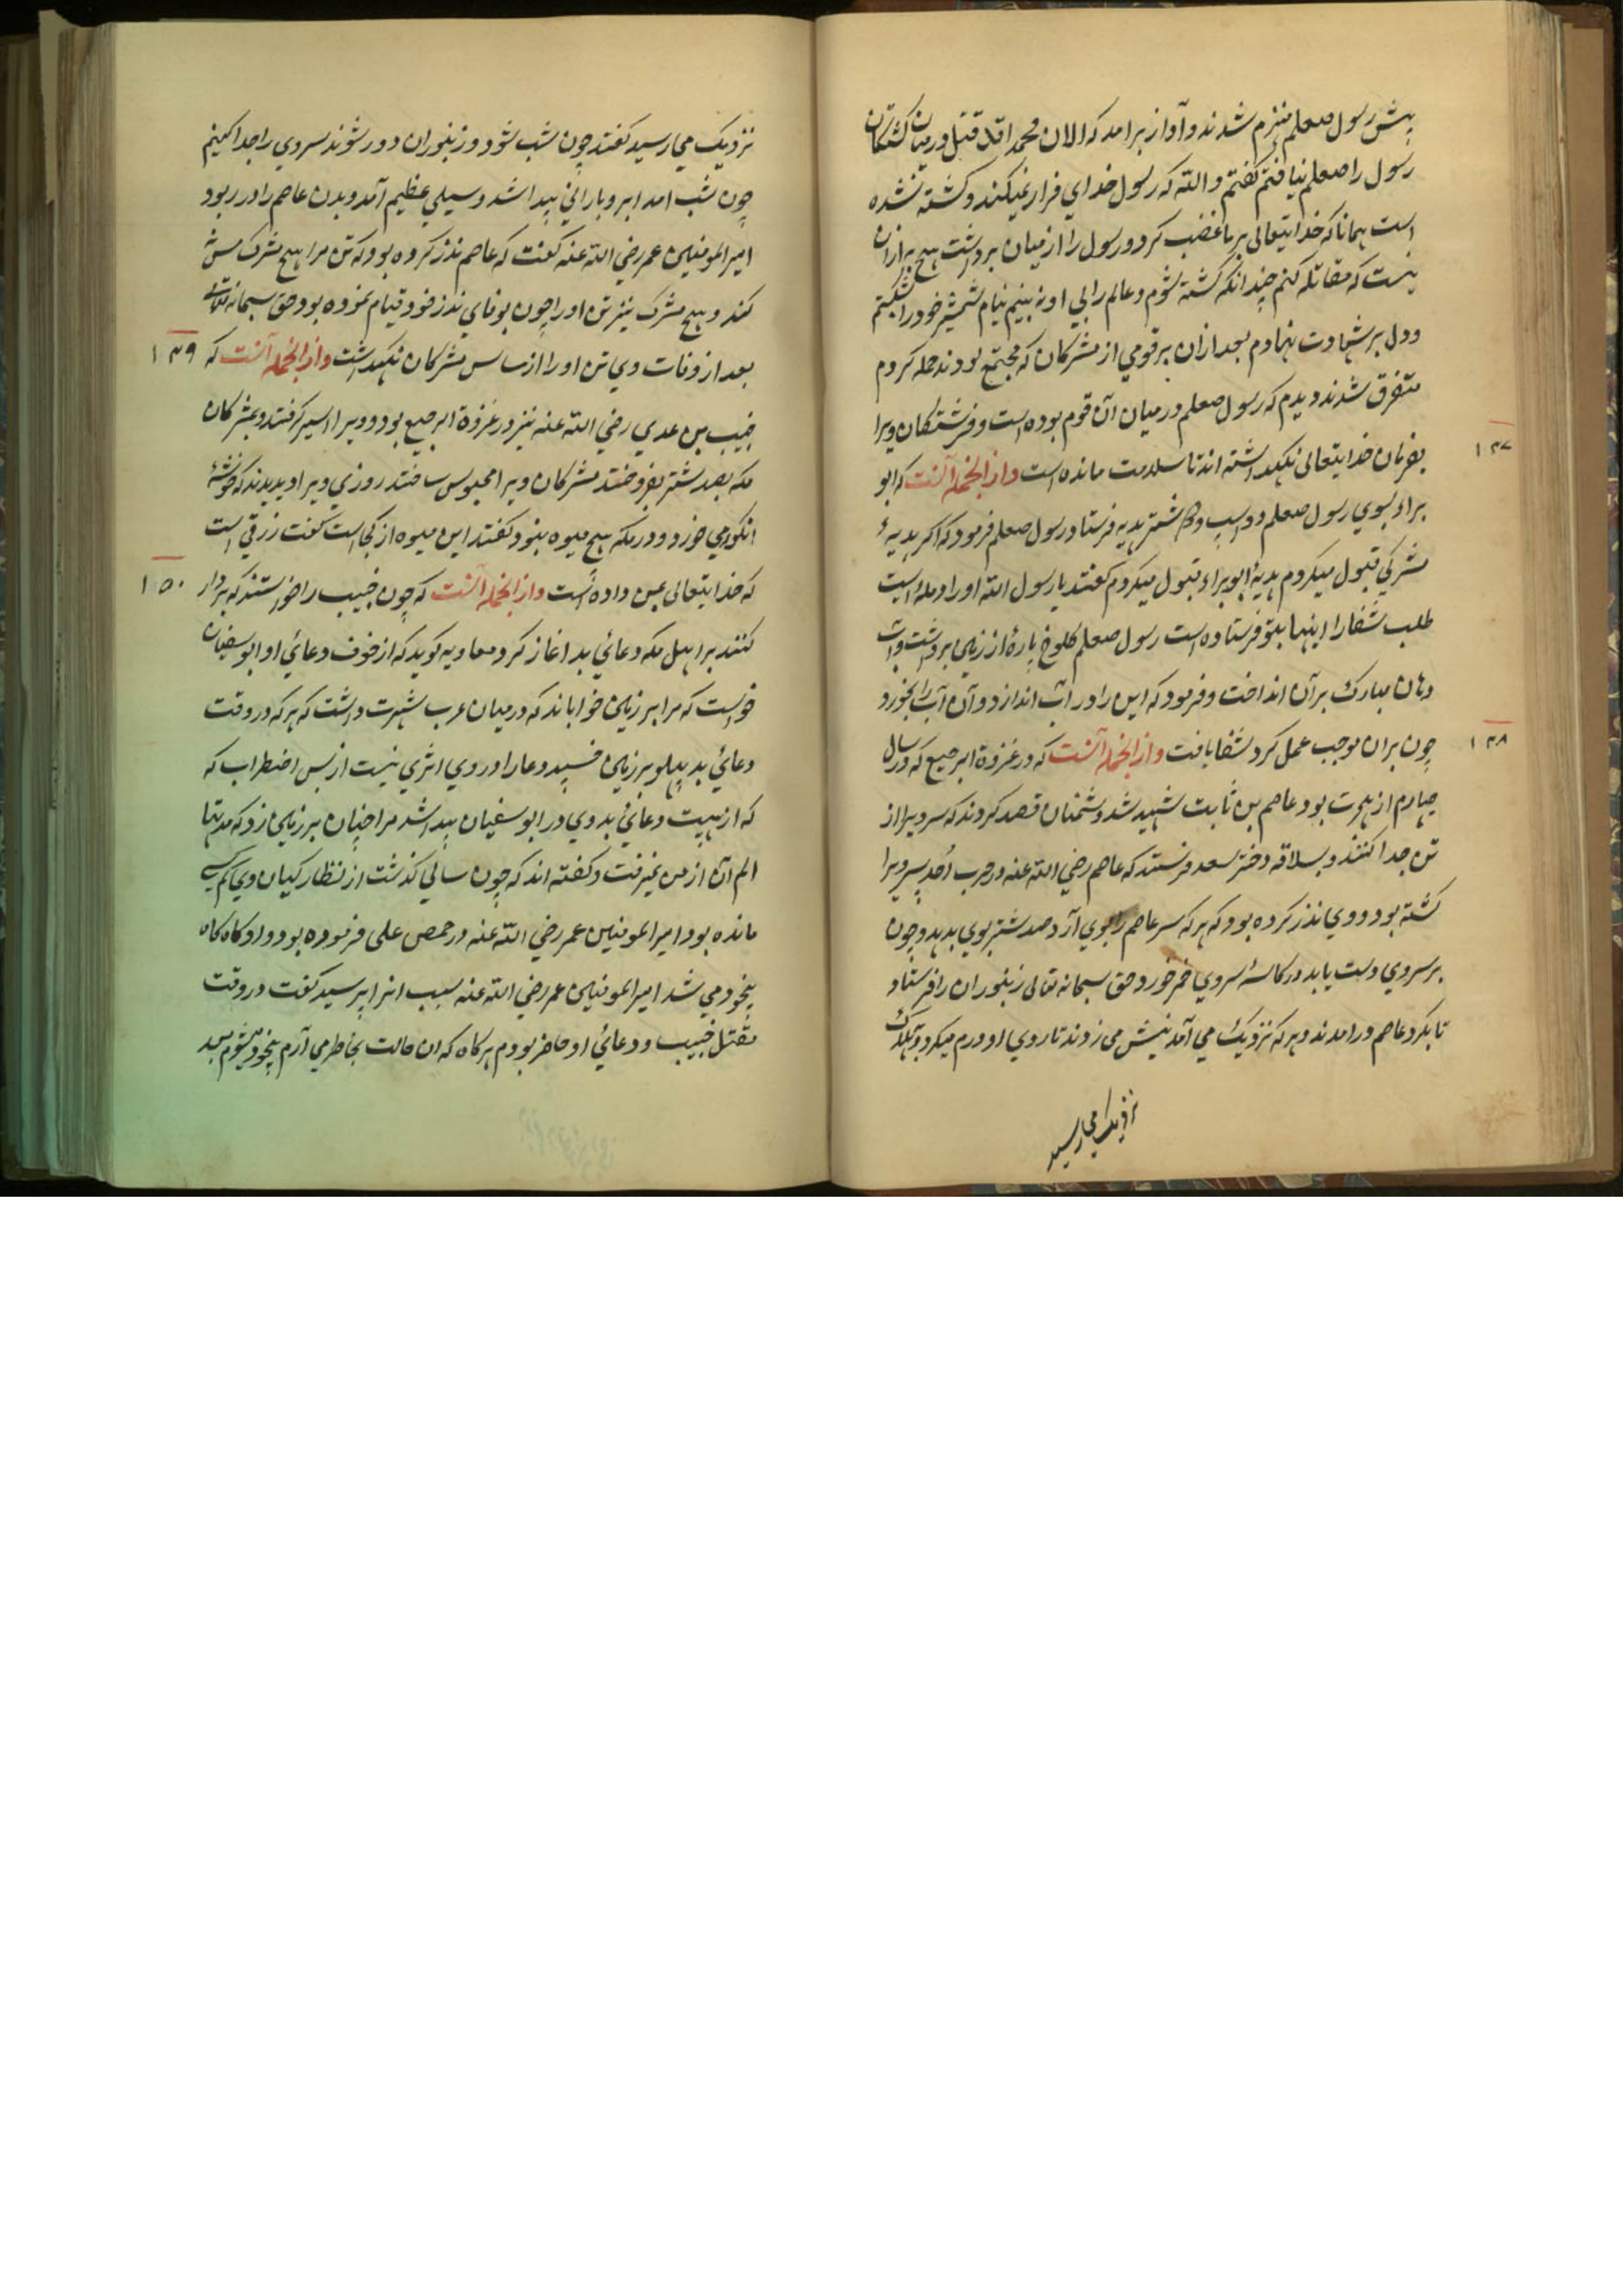 پیش رسول صعلم منهزم شدند و آواز برامد که الان محمد اقد قتل درمیان کشتکان
رسول را صعلم نیافتم کفتم و الله که رسول خدای فرار نمیکند و کشته نشده
است همانا که خدایتعالی بر ما غضب کرد و رسول را از میان برداشت هیچ به ازان
نیست که مقاتله کنم چندانکه کشته شوم و عالم را بی او نه بینم نیام شمشیر خود را شکستم
و دل بر شهادت نهادم بعد ازان بر قومی از مشرکان که مجتمع بودند حمله کردم
متفرق شدند دیدم که رسول صعلم درمیان آن قوم بوده است و فرشتکان ویرا
۱۴۷
بفرمان خدایتعالی نکهداشته اند تا سلامت مانده است و از انجمله آنست که ابو
براء بسوی رسول صعلم دو اسپ و شتر هدیه فرستاد رسول صعلم فرمود که اکر هدیهٔ
مشرکی قبول میکردم هدیهٔ ابو براء قبول میکردم کفتند یا رسول الله او را دمله است
طلب شفا را اینها بتو فرستاده است رسول صعلم کلوخ پارهٔ از زمین برداشت و آب
دهان مبارک بر آن انداخت و فرمود که این را در آب اندازد و آن آب را بخورد
۱۴۸
چون بران موجب عمل کرد شفا یافت و از انجمله آنست که در غزوة الرجیع که در سال
چهارم از هجرت بود عاصم بن ثابت شهید شد دشمنان قصد کردند که سر ویرا از
تن جدا کنند و بسلاقه دختر سعد فرستند که عاصم رضی الله عنه در حرب اُحد پسر ویرا
کشته بود و وی نذر کرده بود که هر که سر عاصم را بوی آرد صد شتر بوی بدهد و چون
بر سر وی دست یابد در کاسهٔ سر وی خمر خورد حق سبحانه تعالی زنبوران را فرستاد
تا بکرد عاصم درامدند و هر که نزدیک می آمد نیش می زدند تا روی او ورم میکرد و بهلاک
نزدیک می رسید
نزدیک می رسید کفتند چون شب شود و زنبوران دور شوند سر وی را جدا کنیم
چون شب امد ابر و بارانی پیدا شد و سیلی عظیم آمد و بدن عاصم را در ربود
امیر المومنین عمر رضی الله عنه کفت که عاصم نذر کرده بود که تن مرا هیچ مشرک مس
نکند و هیچ مشرک نیز تن او را چون بوفای نذر خود قیام نموده بود حق سبحانه تعالی
۱۴۹
بعد از وفات وی تن او را از مساس مشرکان نکهداشت و از انجمله آنست که
خبیب بن عدی رضی الله عنه نیز در غزوة الرجیع بود و ویرا اسیر کرفتند و بمشرکان
مکه بصد شتر بفروختند مشرکان ویرا محبوس ساختند روزی ویرا دیدند که خوشهٔ
انکور می خورد و در مکه هیچ میوه نبود کفتند این میوه از کجاست کفت رزقی است
۱۵۰
که خدایتعالی بمن داده است و از انجمله آنست که چون خبیب را خواستند که بر دار
کنند بر اهل مکه دعائی بد اغاز کرد معاویه کوید که از خوف دعائی او ابو سفیان
خواست که مرا بر زمین خواباند که درمیان عرب شهرت داشت که هر که در وقت
دعائی بد پهلو بر زمین خسپد دعا را در وی اثری نیست از بس اضطراب که
که از هیبت دعائی بد وی در ابو سفیان پیدا شد مرا چنان بر زمین زد که مدتها
الم آن از من نمیرفت و کفته اند که چون سالی کذشت از نظارکیان وی کم کسی
مانده بود و امیر المومنین عمر رضی الله عنه در حمص عملی فرموده بود و او کاه کاه
بیخود می شد امیر المومنین عمر رضی الله عنه سبب انرا پرسید کفت در وقت
مقتل خبیب و دعائی او حاضر بودم هر کاه که ان حالت بخاطر می آرم بیخود میشوم